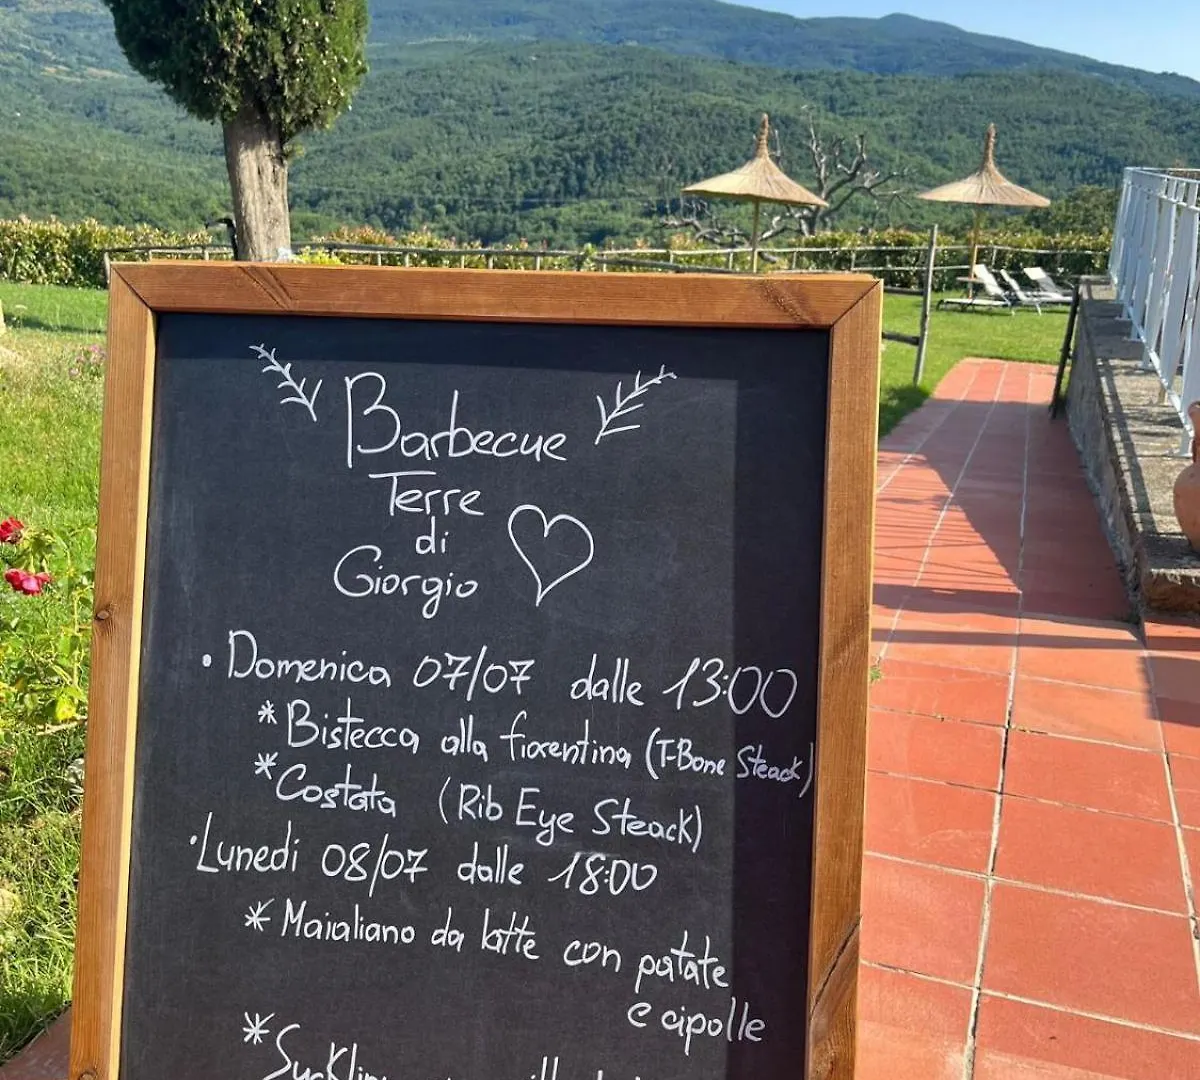 Barbecue
Terre
di
Giorgio
• Domenica 07/07 dalle 13:00
* Bistecca alla fiorentina (T-Bone Steack)
* Costata (Rib Eye Steack)
• Lunedi 08/07 dalle 18:00
* Maialiano da latte con patate
e cipolle
*